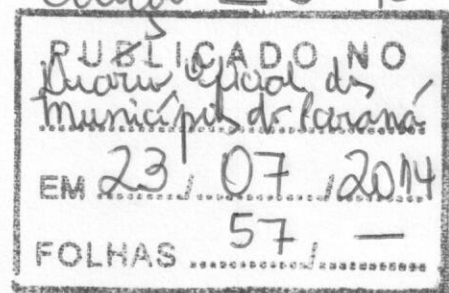 PUBLICADO NO
Diário Oficial dos
Municípios do Paraná
EM 23 / 07 / 2014
FOLHAS 57 / —